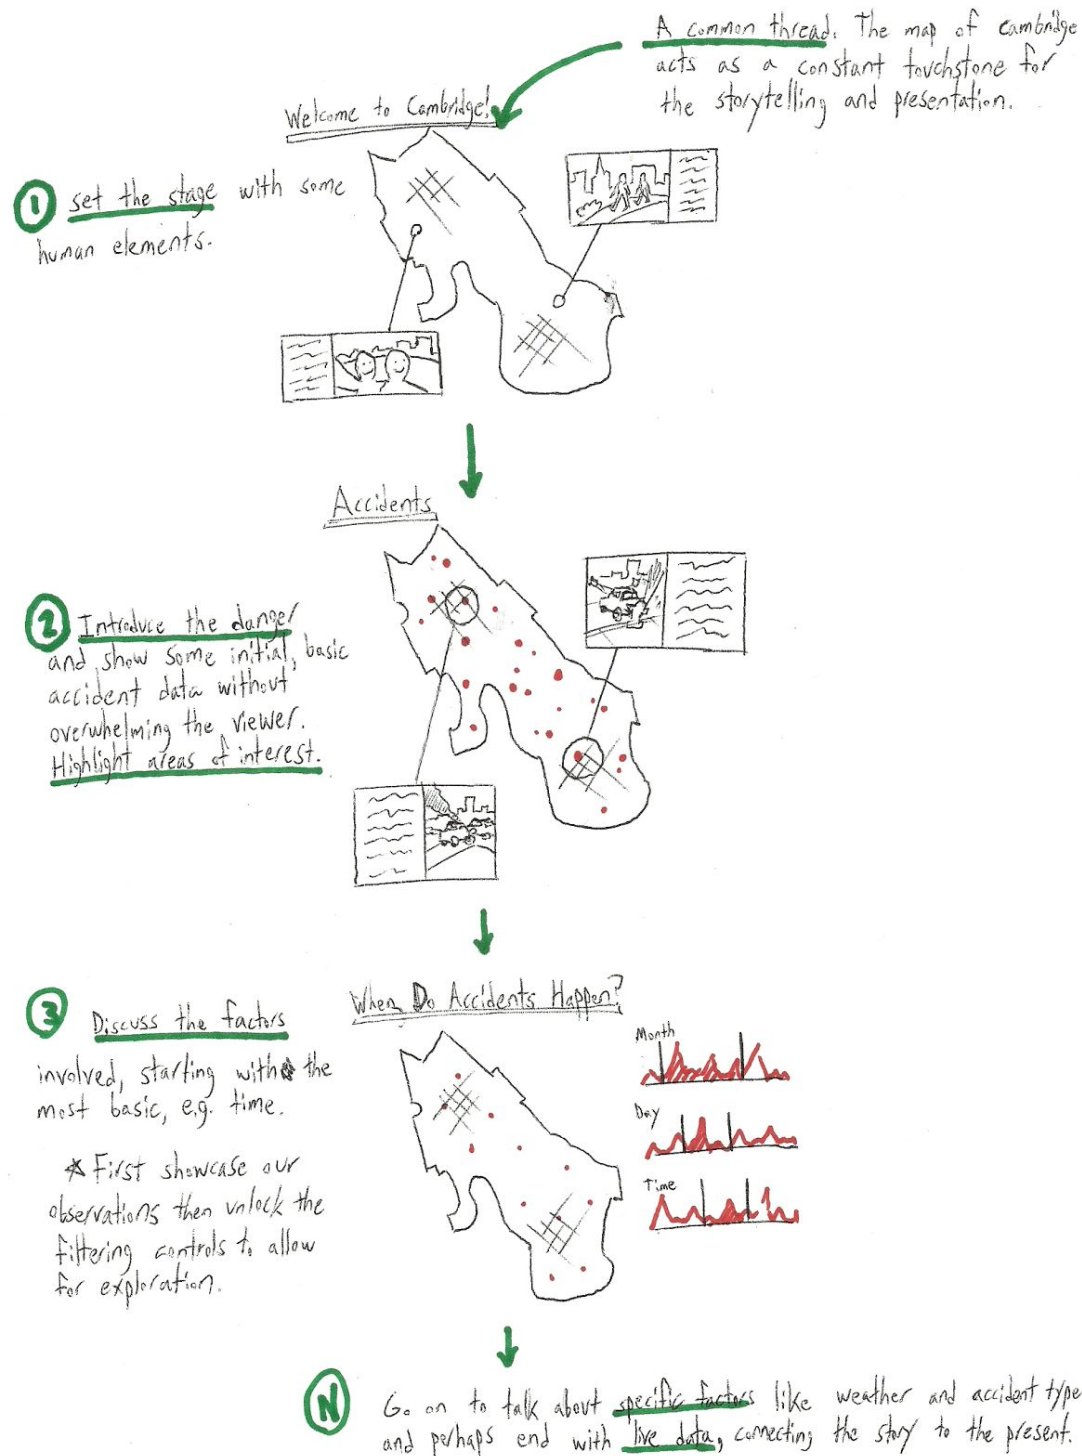 A common thread. The map of Cambridge
acts as a constant touchstone for
the storytelling and presentation.
Welcome to Cambridge!
1 set the stage with some
human elements.
Accidents
2 Introduce the danger
and show some initial, basic
accident data without
overwhelming the viewer.
Highlight areas of interest.
When Do Accidents Happen?
3 Discuss the factors
involved, starting with the
most basic, e.g. time.
* First showcase our
observations then unlock the
filtering controls to allow
for exploration.
Month
Day
Time
N Go on to talk about specific factors like weather and accident type
and perhaps end with live data, connecting the story to the present.